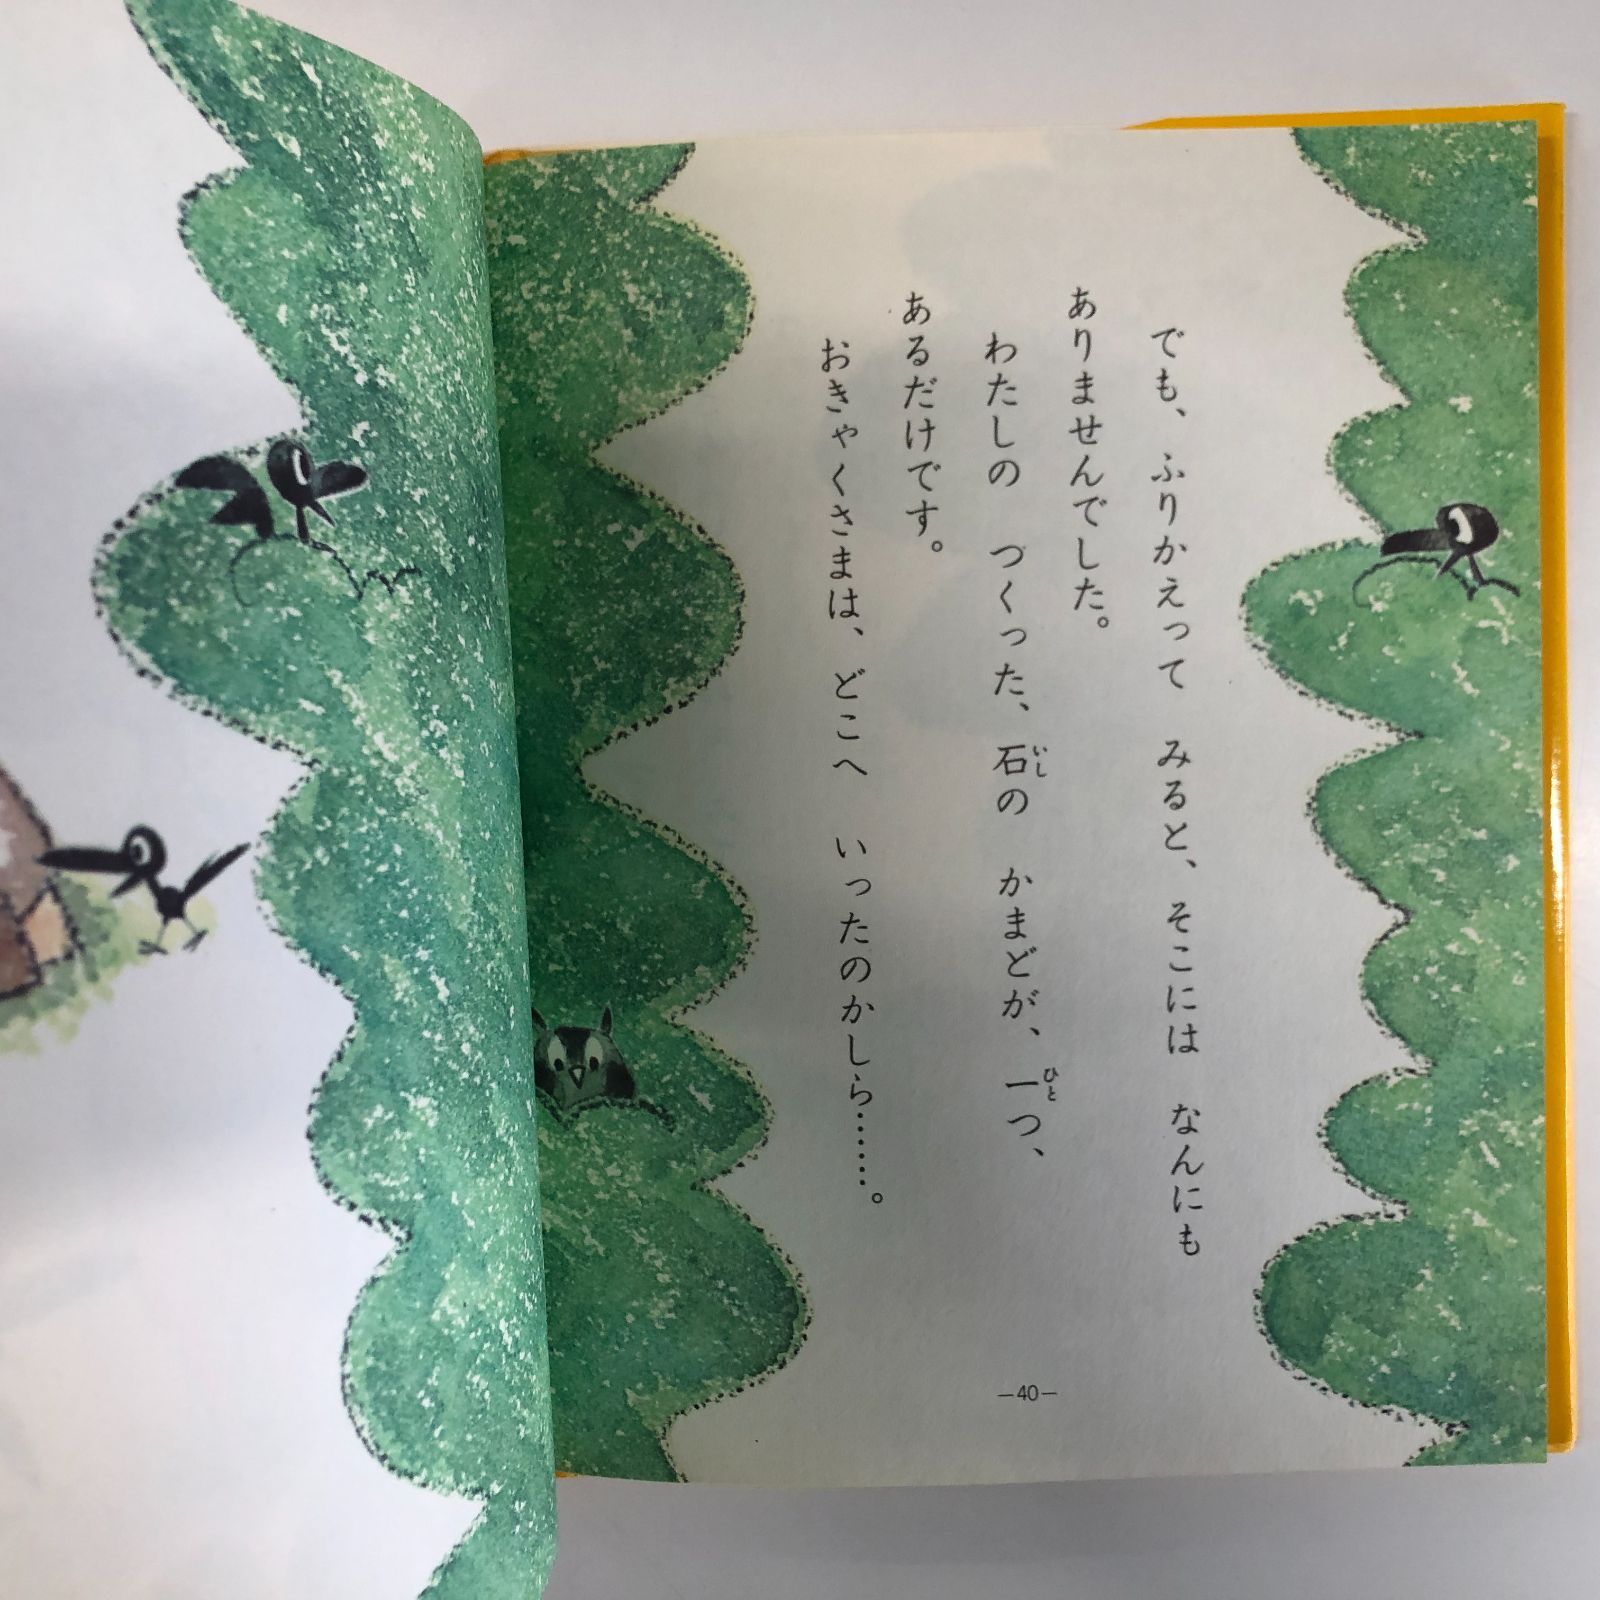 でも、ふりかえって みると、そこには なんにも
ありませんでした。
わたしの つくった、石の かまどが、一つ、
いし
ひと
あるだけです。
おきゃくさまは、どこへ いったのかしら……。
—40—